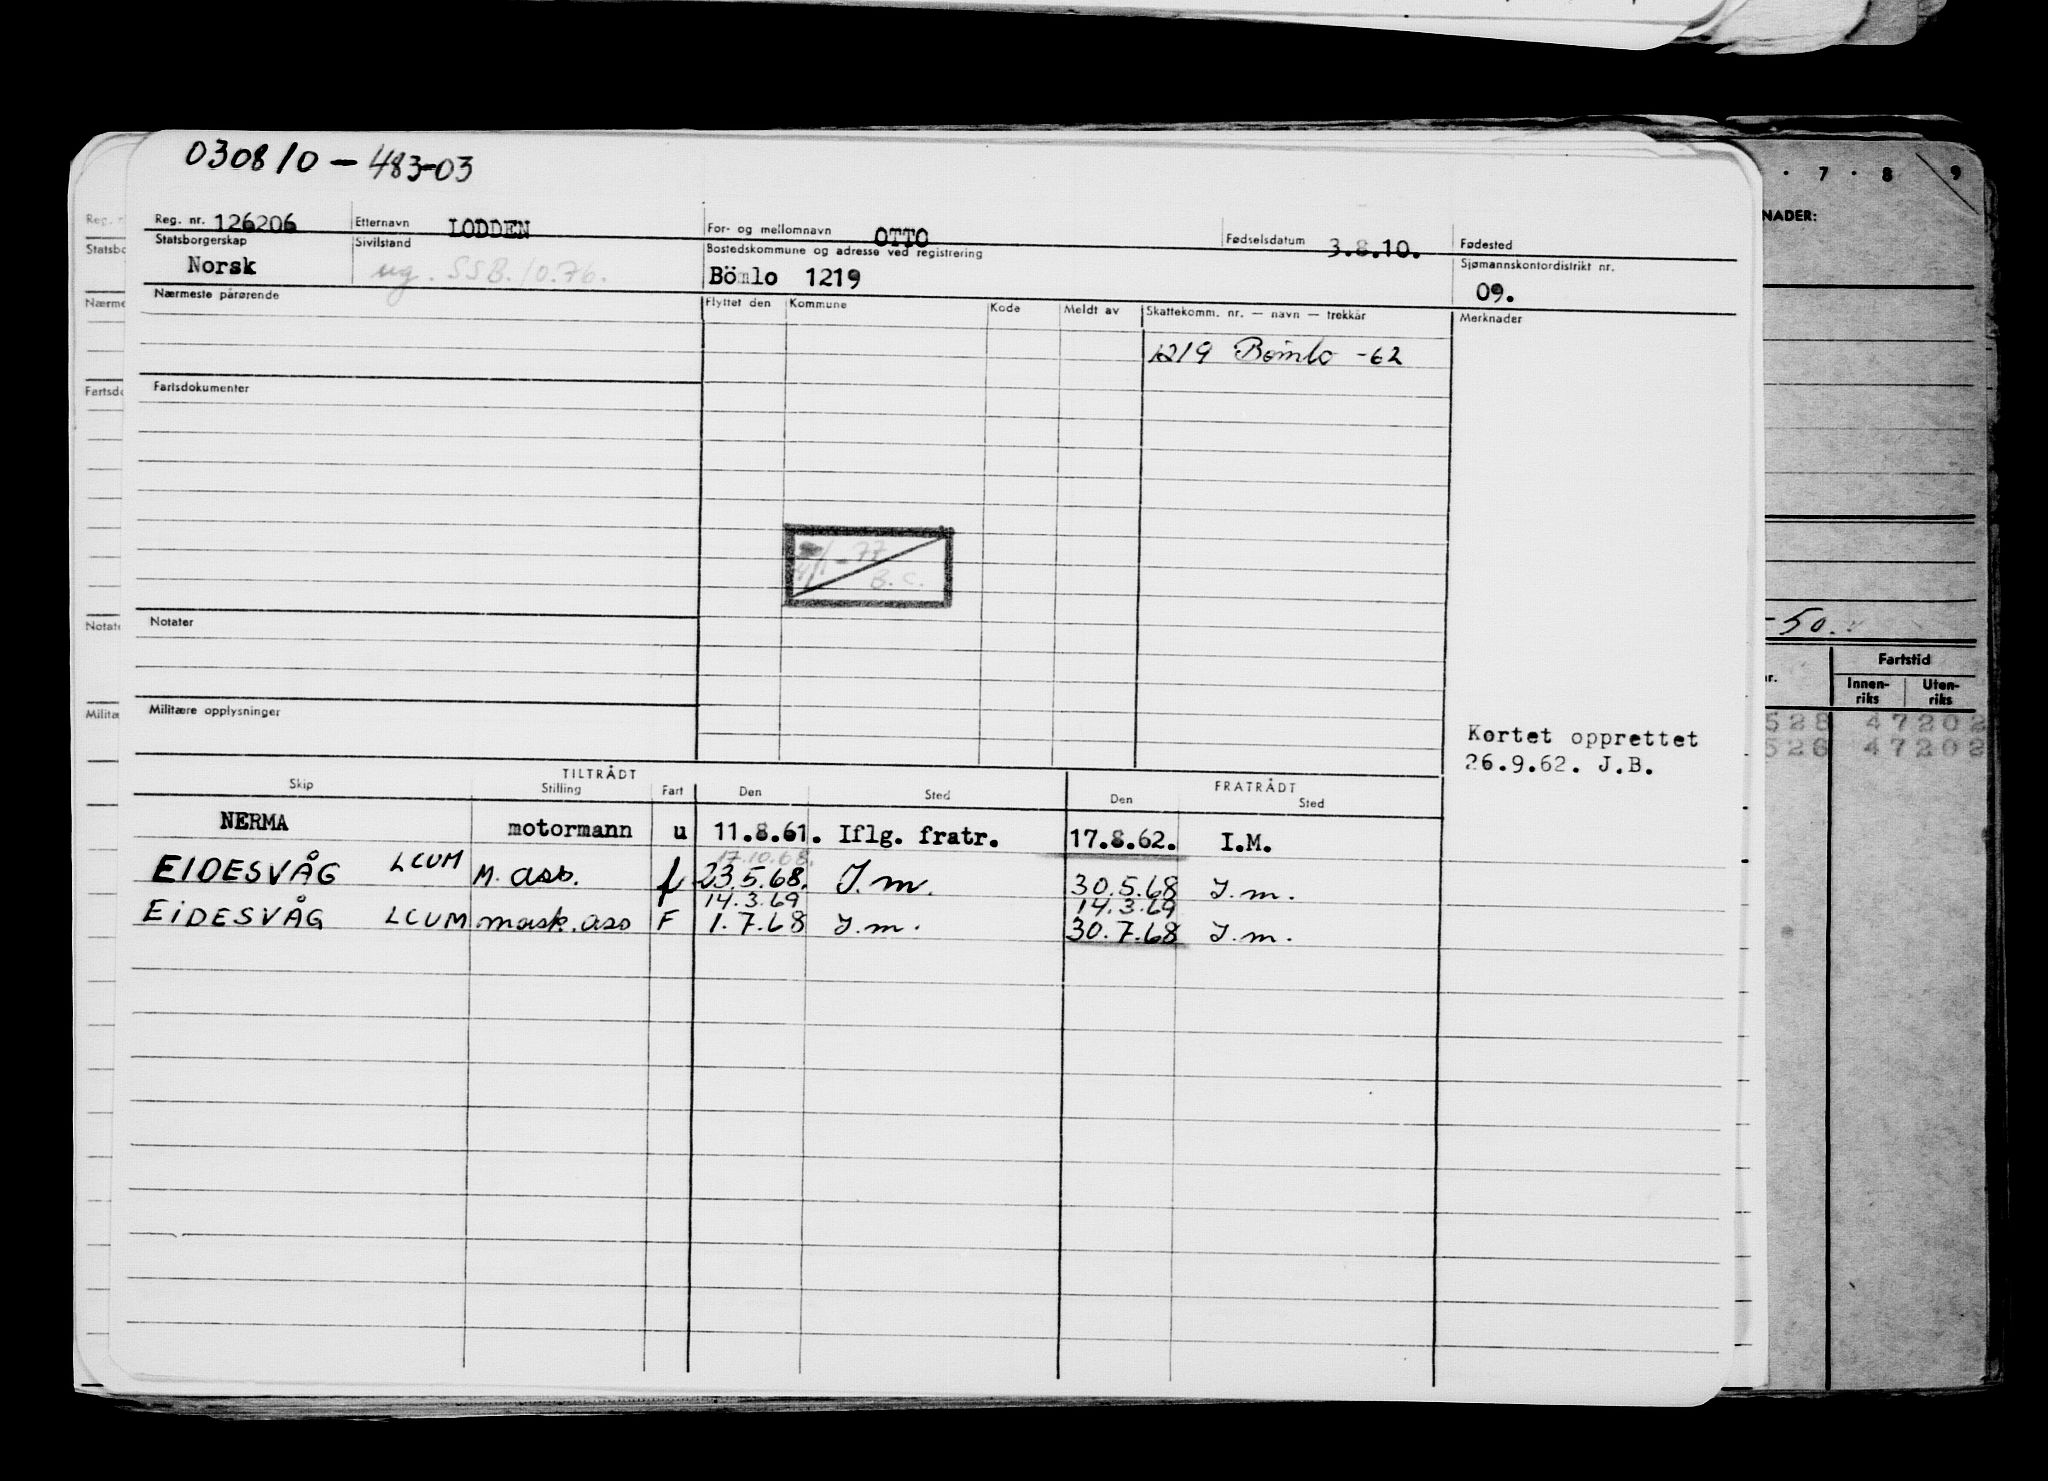 030810 - 483-03
Reg. nr. 126206 Etternavn LODDEN For- og mellomnavn OTTO Fødselsdatum 3.8.10. Fødested
Statsborgerskap Norsk Sivilstand ug. SSB. 10.76. Bostedskommune og adresse ved registrering Bömlo 1219 Sjømannskontordistrikt nr. 09.
Nærmeste pårørende Flyttet den Kommune Kode Meldt av Skattekomm. nr. — navn — trekkår Merknader
1219 Bømlo -62
Fartsdokumenter
-77
B.C.
Notater
Militære opplysninger
Kortet opprettet
26.9.62. J.B.
TILTRÅDT FRATRÅDT
Skip Stilling Fart Den Sted Den Sted
NERMA motormann u 11.8.61. Iflg. fratr. 17.8.62. I.M.
17.10.68.
EIDESVÅG LCUM M. ass. f 23.5.68. I.m. 30.5.68 I.m.
14.3.69 14.3.69
EIDESVÅG LCUM mask.ass F 1.7.68 I.m. 30.7.68 I.m.
Reg. n
Statsbo
Nærme
Fartsdo
Notate
Militæ
7 8 9
NADER:
-50.
nr. Fartstid
Innen-riks Uten-riks
528 47202
526 47202